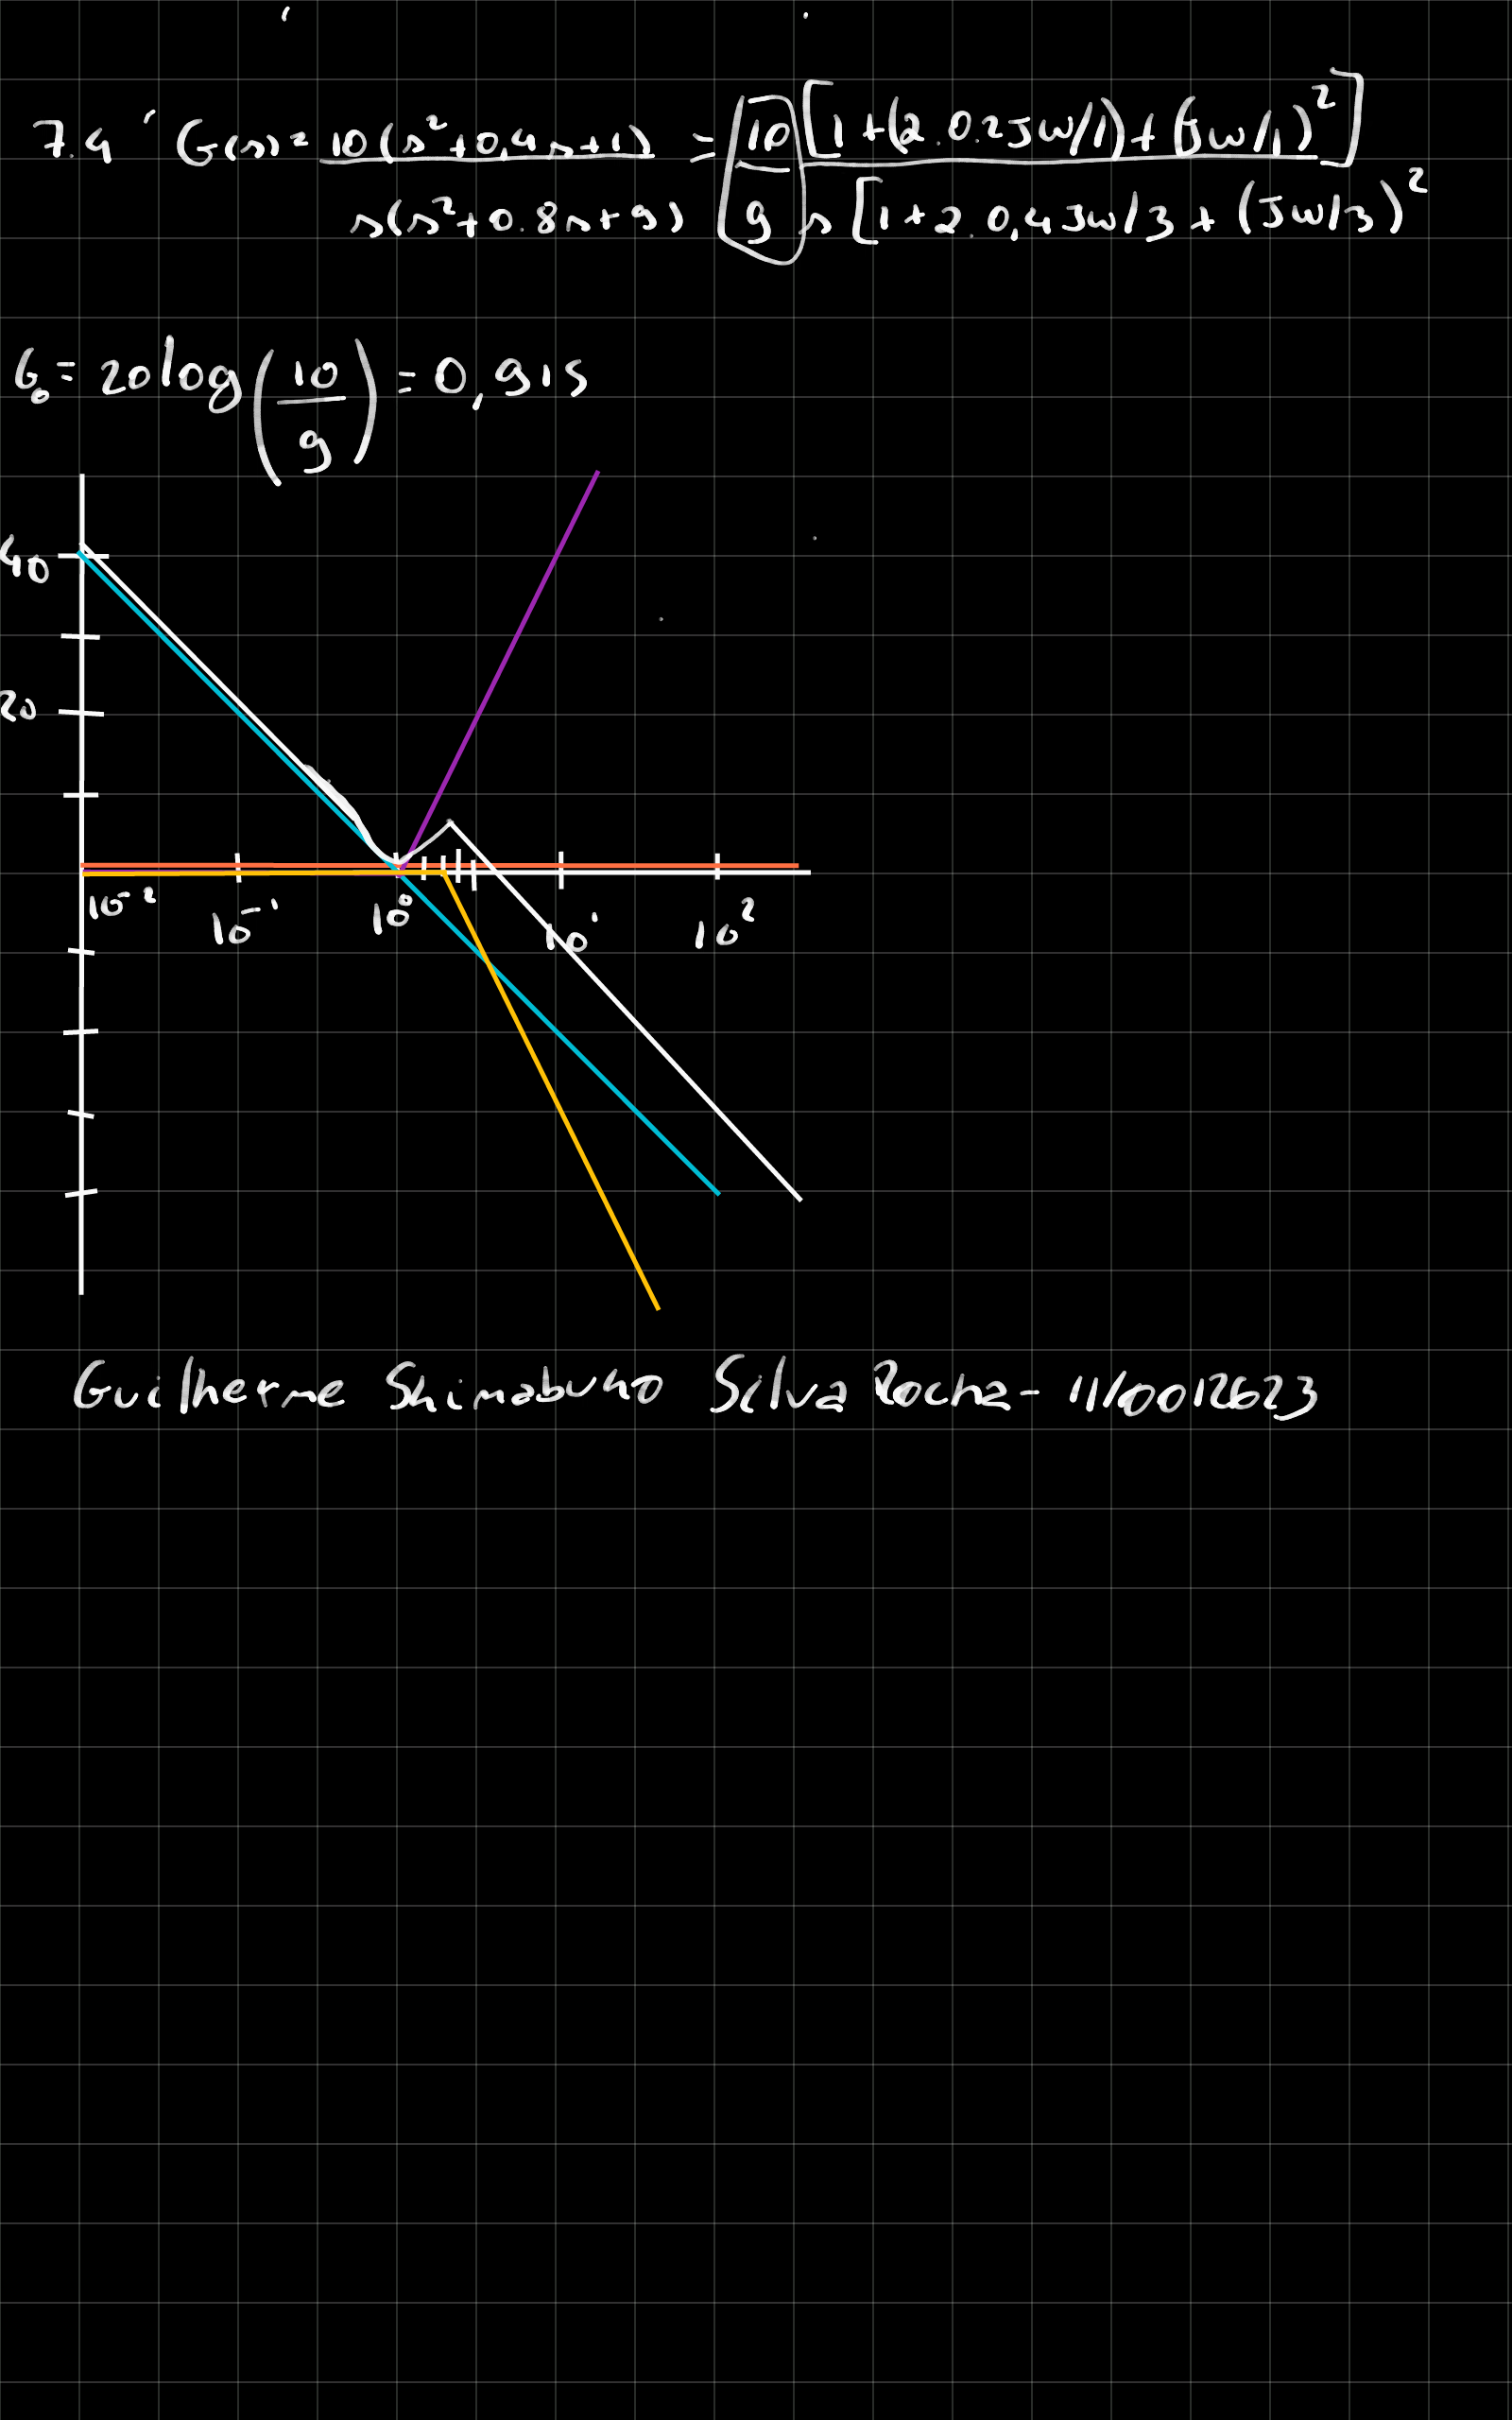 7.4 G(s) = 10(s²+0,4s+1) / s(s²+0.8s+9) = 10/9 [1+(2.0.2Jw/1)+(Jw/1)²] / s[1+2.0,4Jw/3+(Jw/3)²
G₀ = 20log(10/9) = 0,915
40
20
10⁻² 10⁻¹ 10⁰ 10¹ 10²
Guilherme Shimabuko Silva Rocha - 11/0012623